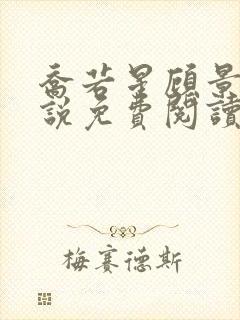 喬若星顧景
說免費閱讀
梅賽德斯